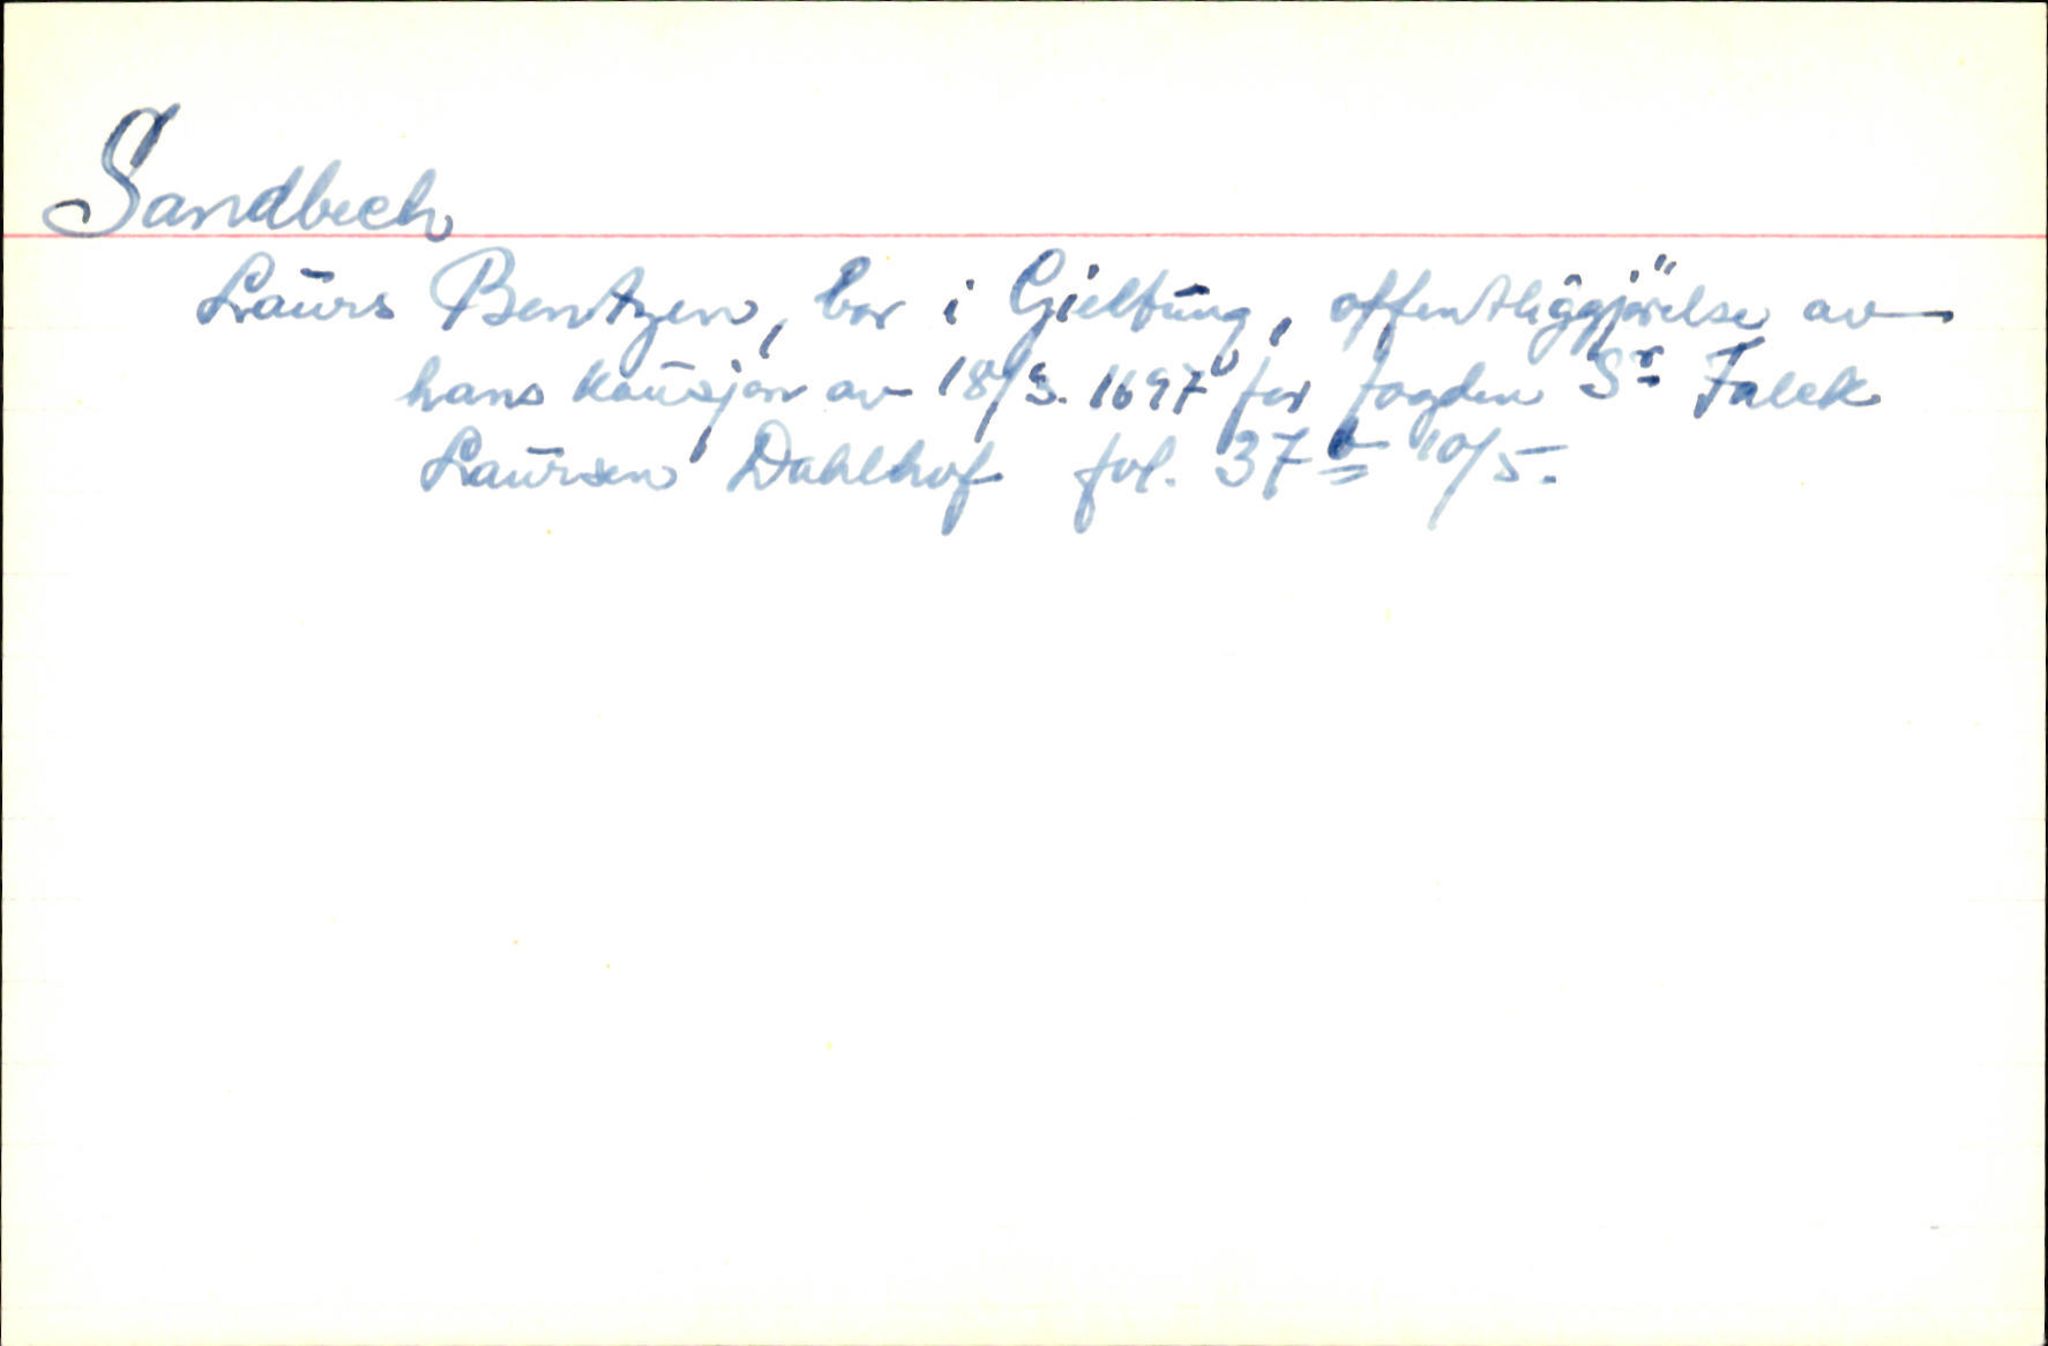 Sandbech
Laurs Bentzen, bor i Gieltung, offentliggjörelse av
hans kausjon av 18/3. 1697 for fogden Sr Falck
Laursen Dahlhof fol. 37b 10/5.